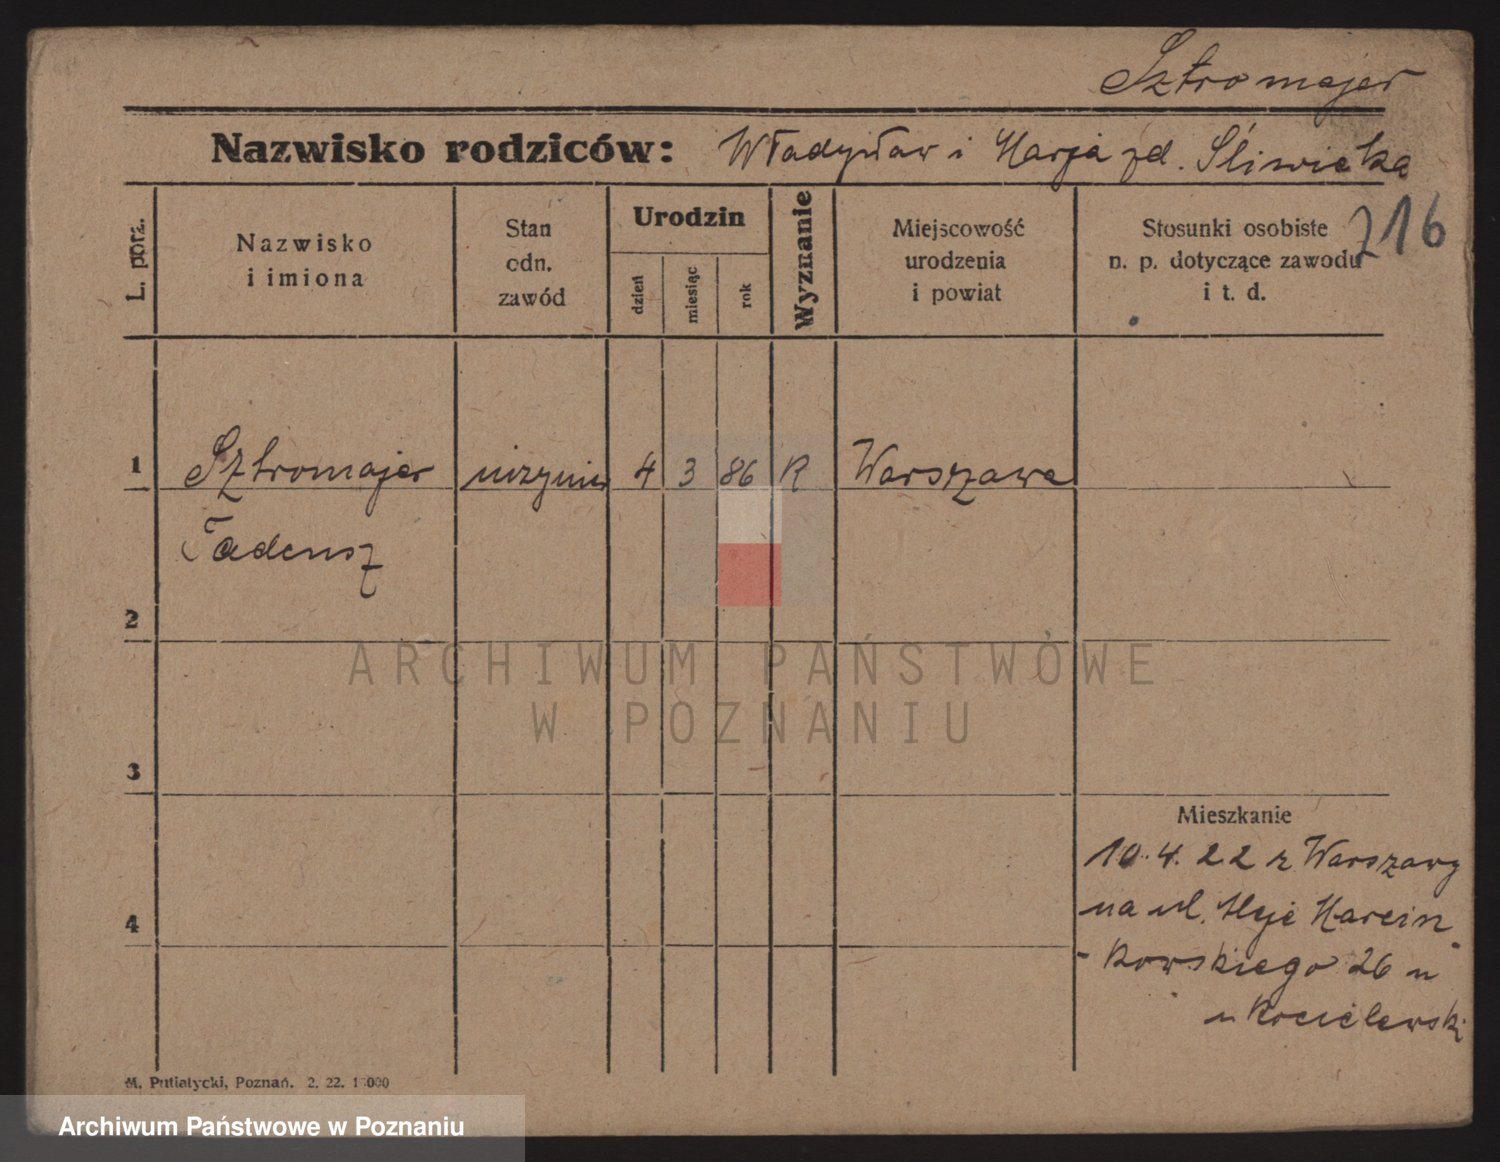 Sztromajer
Nazwisko rodziców: Władysław i Marja zd. Śliwicka
716
L. porz.
Nazwisko
i imiona
Stan
odn.
zawód
Urodzin
dzień
miesiąc
rok
Wyznanie
Miejscowość
urodzenia
i powiat
Stosunki osobiste
n. p. dotyczące zawodu
i t. d.
1 Sztromajer 4 3 86 R Warszawa
Tadeusz
2
ARCHIWUM PAŃSTWOWE
W POZNANIU
3
Mieszkanie
10.4.22 z Warszawy
na ul. Marcin
4
-kowskiego 26
M. Putiatycki, Poznań. 2. 22.
Archiwum Państwowe w Poznaniu